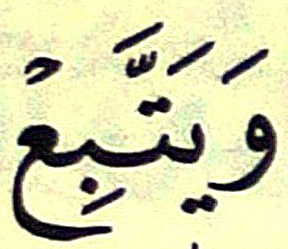 وَيَتَّبِعْ